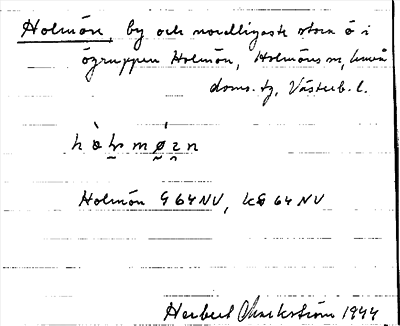 Holmön, by och nordligaste stora ö i
ögruppen Holmön, Holmöns sn, Umeå
doms. tg, Västerb. l.
Holmön G 64 NV, kG 64 NV
Herbert 1944